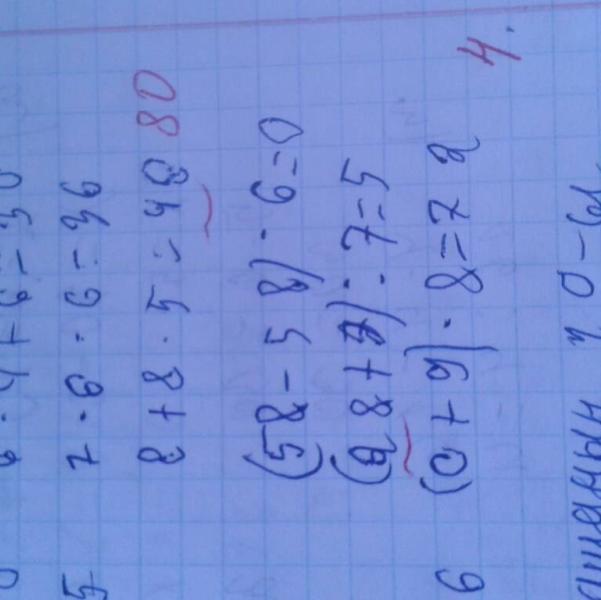 5 1 · 6 · 6 = 36
8 + 8 · 5 = 48 80
(58 - 58) · 6 = 0
(28 + 7) : 7 = 5
6 (0 + 9) · 8 = 72 4.